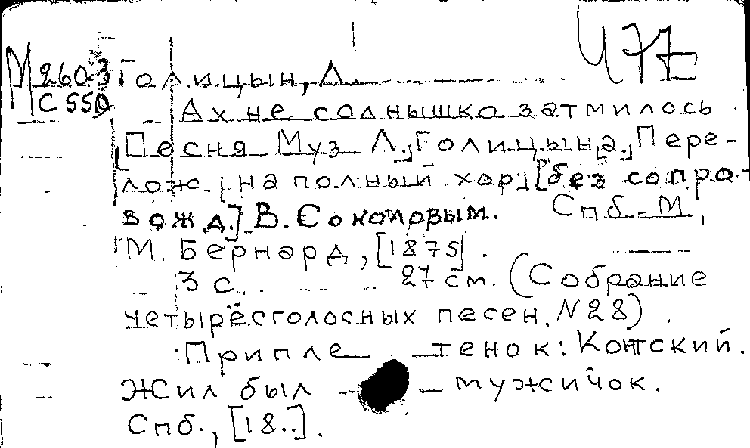 М 260-3 Голицын, Л.
С 550
Ах не солнышко затмилось.
Песня Муз Л. Голицына. Пере-
лож. на полный хор [без сопро-
вожд.] В. Соколовым. Спб. М,
М. Бернард, [1875].
3 с. 27 см. (Собрание
четырёсголосных песен. N28).
Припле тенок: Контский.
Жил был мужичок.
Спб., [18..].